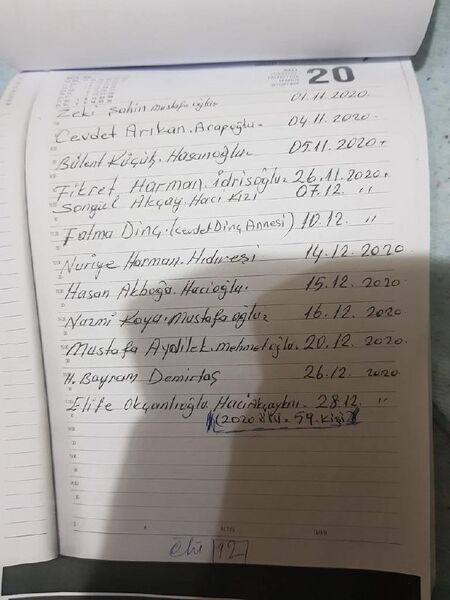 20
Zeki Şahin mustafa oğlu 01.11.2020.
Cevdet Arıkan. Arapoğlu. 04.11.2020.
Bülent Küçük. Hasanoğlu. 05.11.2020.
Fikret Harman. idrisoğlu. 26.11.2020.
Songül Akçay. Hacı Kızı 07.12. "
Fatma Dinç. (Cevdet Dinç Annesi) 10.12. "
Nuriye Harman. Hıdır eşi 14.12.2020
Hasan Akboğa. Hacıoğlu. 15.12.2020
Nazmi Kaya. Mustafa oğlu 16.12.2020
Mustafa Aydilek. mehmetoğlu. 20.12.2020.
H. Bayram Demirtaş 26.12.2020
Elife Okçanlıoğlu. 28.12. "
(2020 ölü = 59. Kişi)
12